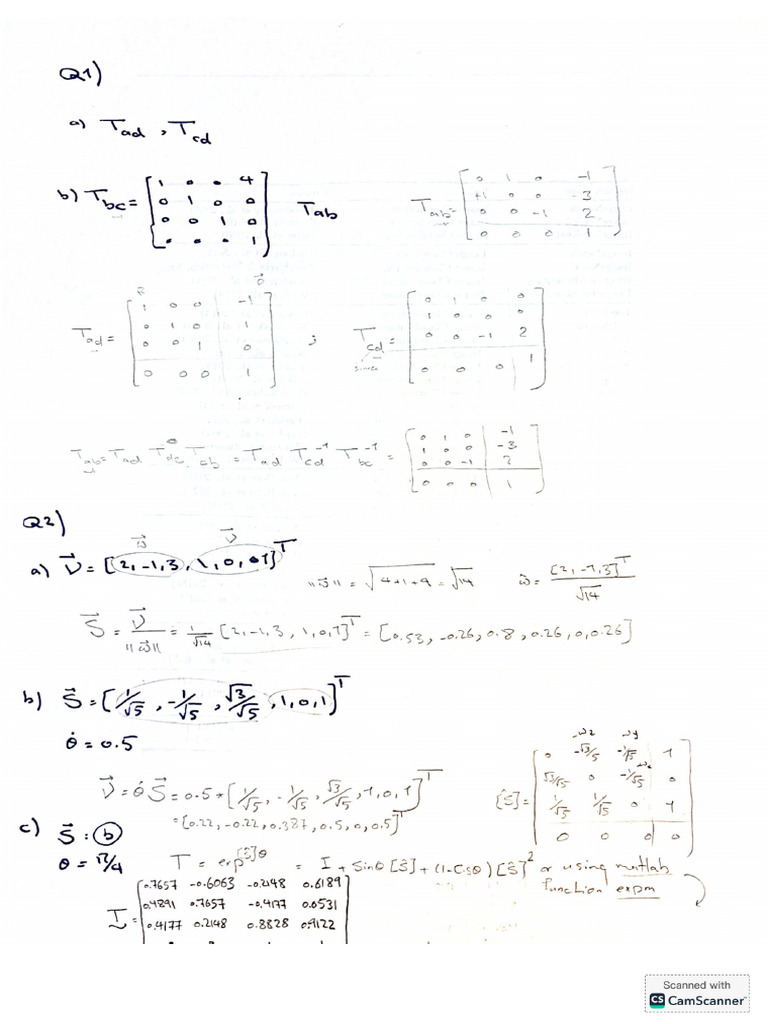 Q1)
a) Tad , Tcd
b) Tbc = [1 0 0 4; 0 1 0 0; 0 0 1 0; 0 0 0 1] Tab Tab = [0 1 0 -1; +1 0 0 -3; 0 0 -1 2; 0 0 0 1]
Tad = [1 0 0 -1; 0 1 0 1; 0 0 1 0; 0 0 0 1] ; Tcd = [0 1 0 0; 1 0 0 0; 0 0 -1 2; 0 0 0 1]
Tab = Tad Tdc Tcb = Tad Tcd⁻¹ Tbc⁻¹ = [0 1 0 -1; 1 0 0 -3; 0 0 -1 2; 0 0 0 1]
Q2)
a) V = [2, -1, 3, 1, 0, 1]ᵀ "ω" = √4+1+9 = √14 ω̂ = [2, -1, 3]ᵀ / √14
S = V / "ω" = 1/√14 [2, -1, 3, 1, 0, 1]ᵀ = [0.53, -0.26, 0.8, 0.26, 0, 0.26]
b) S = [1/√5, -1/√5, √3/√5, 1, 0, 1]ᵀ
θ̇ = 0.5
V = θ̇ S = 0.5 * [1/√5, -1/√5, √3/√5, 1, 0, 1]ᵀ
= [0.22, -0.22, 0.387, 0.5, 0, 0.5]ᵀ
-ωz ωy
[S] = [0 -√3/√5 -1/√5 1; √3/√5 0 -1/√5 0; 1/√5 1/√5 0 1; 0 0 0 0]
c) S : b
θ = π/4 T = exp[S]θ = I + Sinθ [S] + (1-Cosθ) [S]² or using matlab
function expm
T = [0.7657 -0.6063 -0.2148 0.6189; 0.4891 0.7657 -0.4177 0.0531; 0.4177 0.2148 0.8828 0.9122
Scanned with
CS CamScanner